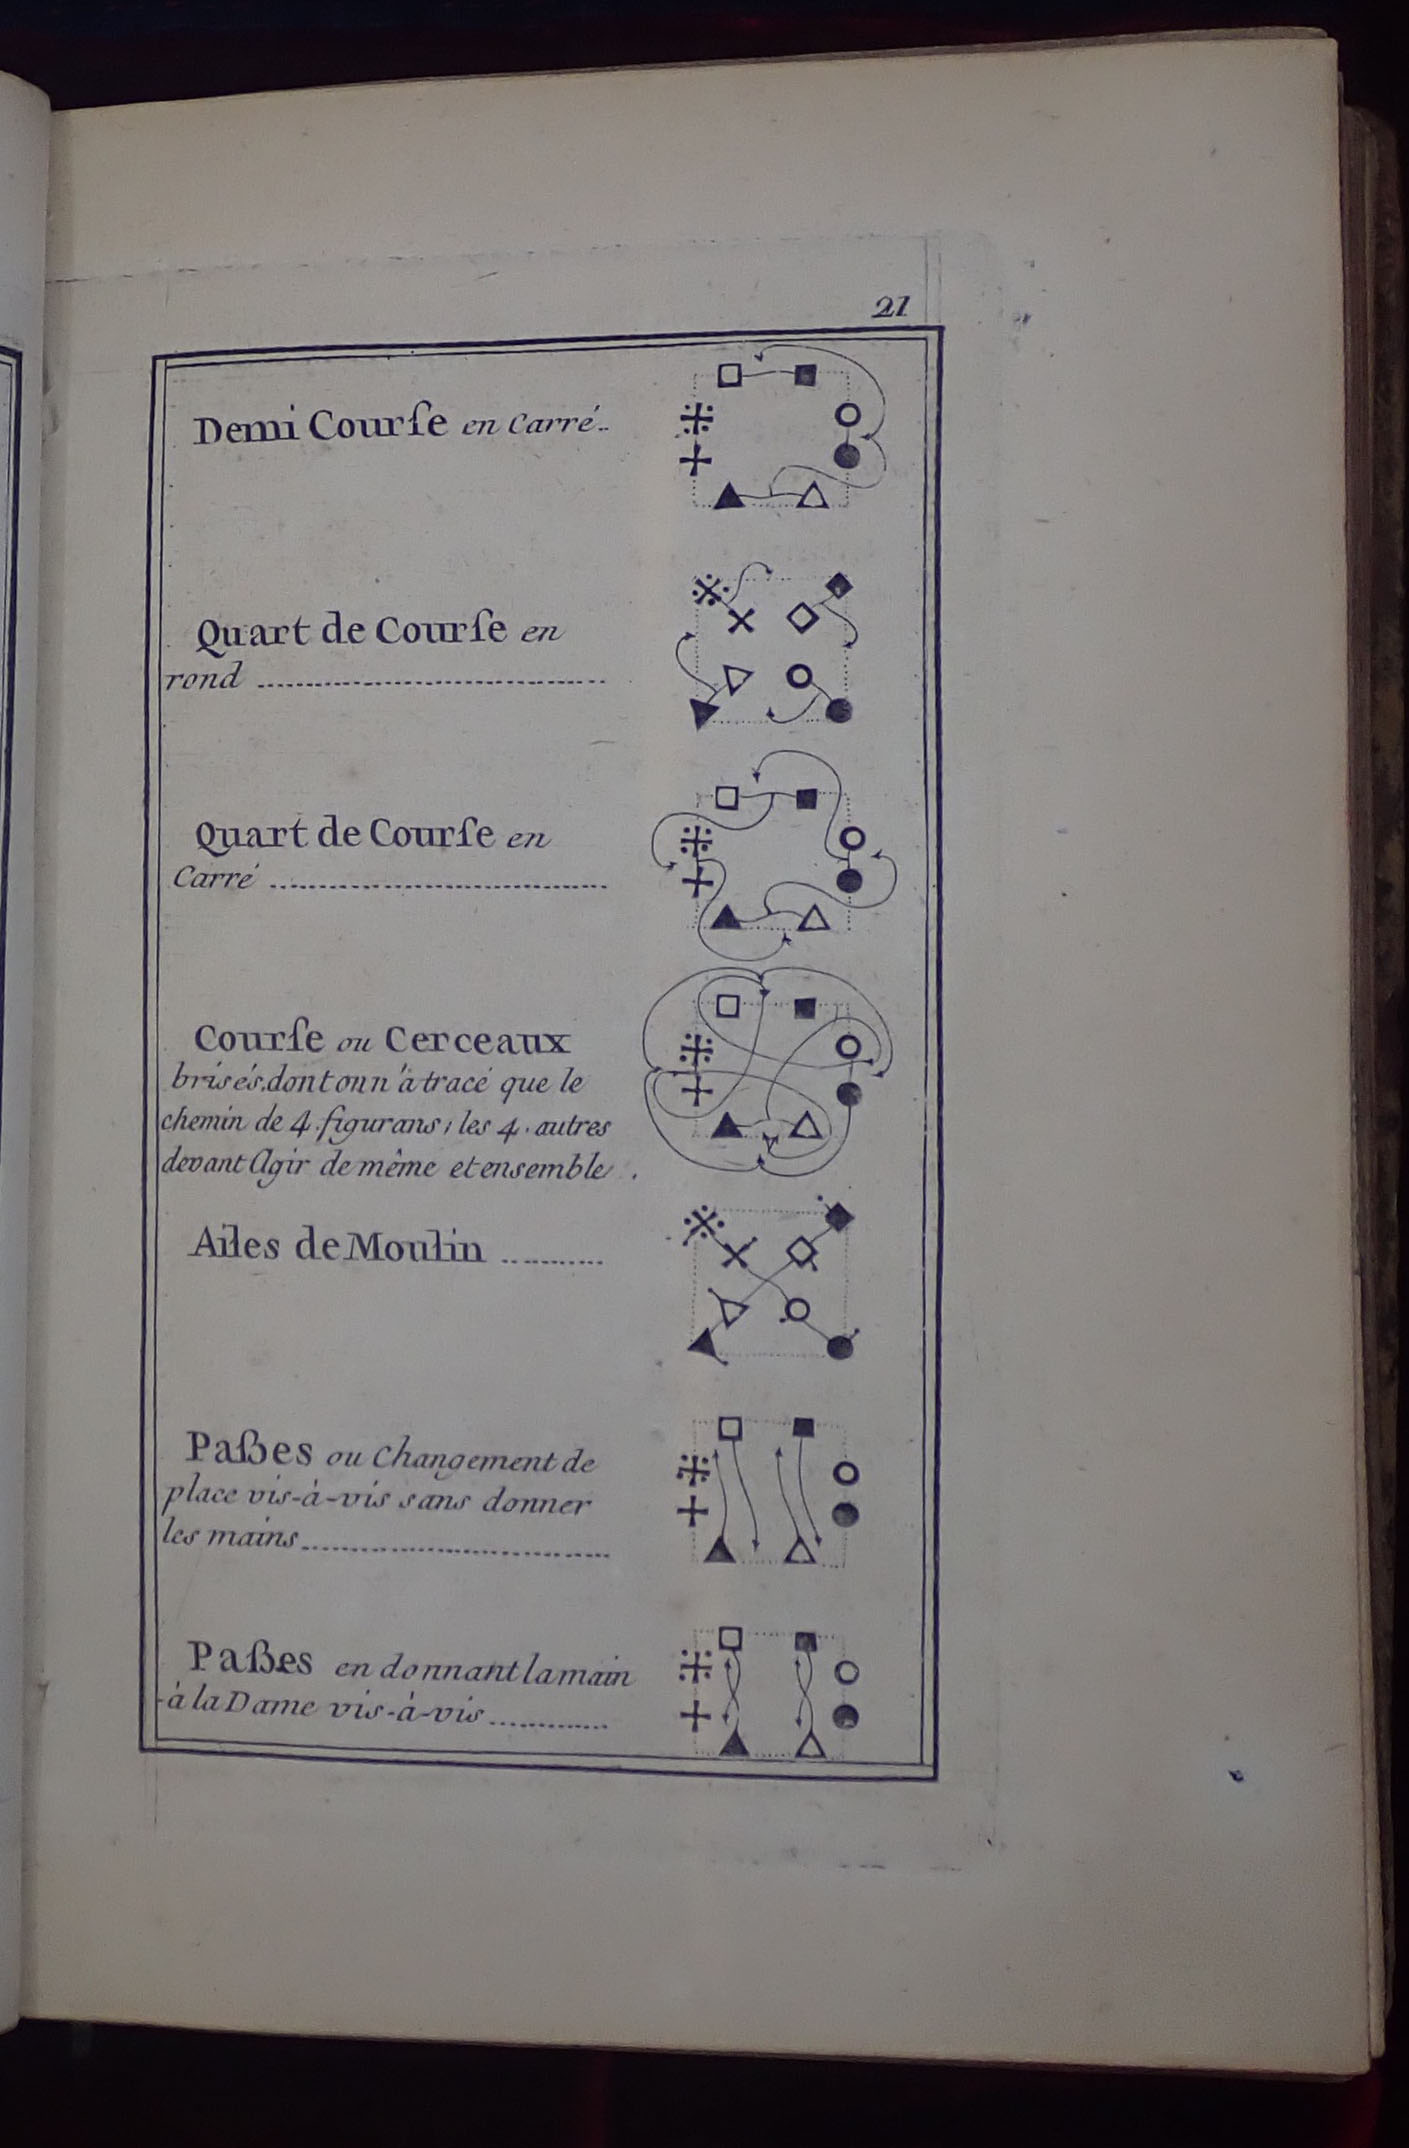 21
Demi Courſe en Carré..
Quart de Courſe en
rond
Quart de Courſe en
Carré
Courſe ou Cerceaux
brisés, dont on n'a tracé que le
chemin de 4. figurans; les 4. autres
devant Agir de même et ensemble.
Ailes de Moulin
Paßes ou Changement de
place vis-à-vis sans donner
les mains
Paßes en donnant la main
à la Dame vis-à-vis